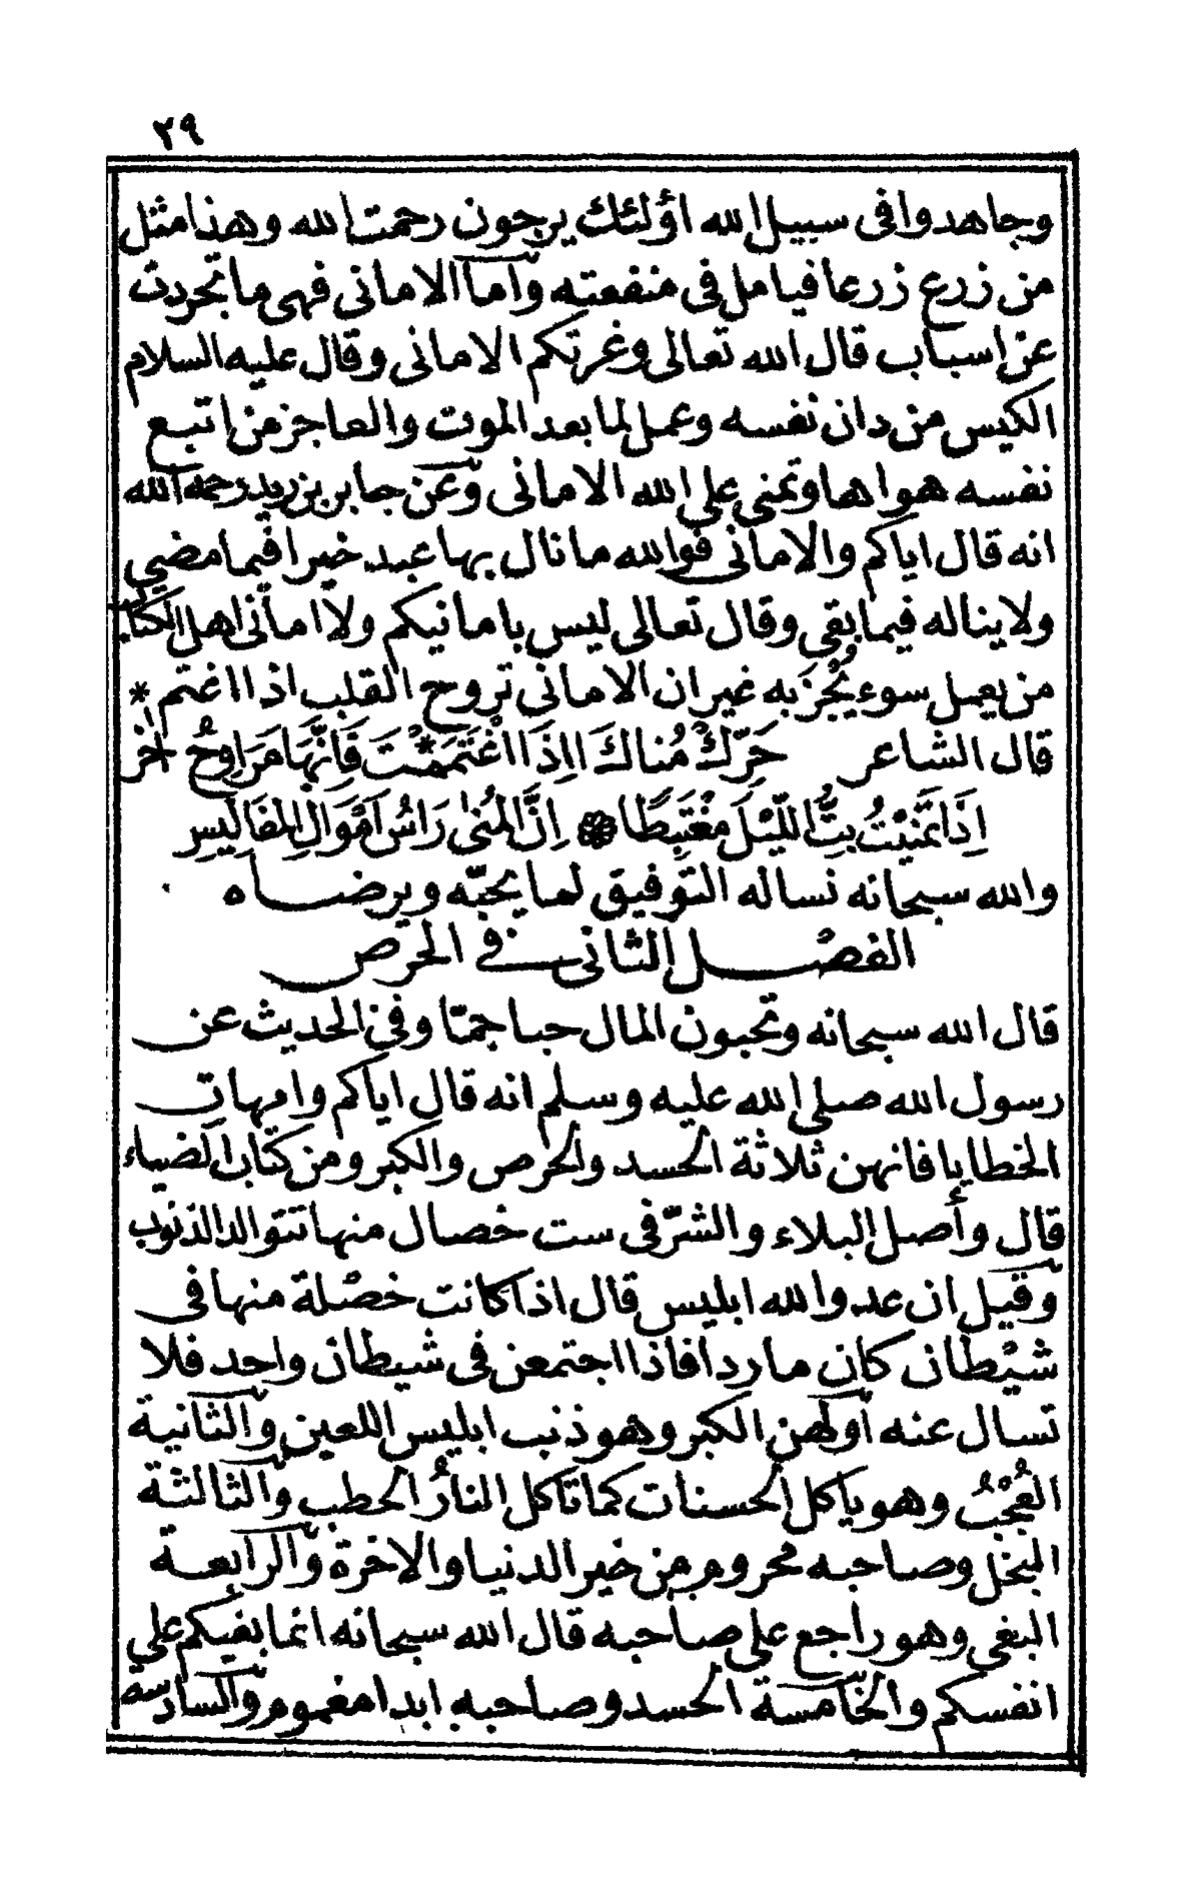 ٢٩
وجاهدوا فى سبيل الله اؤلئك يرجون رحمت الله وهذا مثل
من زرع زرعا فيامل فى منفعته واما الامانى فهى ما تجردت
عن اسباب قال الله تعالى وغرتكم الامانى وقال عليه السلام
الكيس من دان نفسه وعمل لما بعد الموت والعاجز من اتبع
نفسه هواها وتمنى على الله الامانى وعن جابر بن زيد رحمه الله
انه قال اياكم والامانى فوالله ما نال بها عبد خيرا فيما مضى
ولا يناله فيما بقى وقال تعالى ليس بامانيكم ولا امانى اهل الكتاب
من يعمل سوء يُجْزَ به غير ان الامانى تروح القلب اذا اغتم *
قال الشاعر حَرّكْ مُناكَ اِذَا اغْتَمَمْتَ * فَاِنَّهَا مَرَاوِحُ اٰخر
اِذَا تَمَنَّيْتُ بِتُّ اللّيْلَ مُغْتَبِطًا * اِنَّ المُنٰى رَاسُ اَمْوَالِ المَفَالِيسِ
والله سبحانه نساله التوفيق لما يحبّه ويرضاه
الفصْل الثانى فى الحرص
قال الله سبحانه وتحبون المال حبا جمّا وفى الحديث عن
رسول الله صلى الله عليه وسلم انه قال اياكم وامهات
الخطايا فانهن ثلاثة الحسد والحرص والكبر ومن كتاب الضياء
قال وأصل البلاء والشرّ فى ست خصال منها تتوالد الذنوب
وقيل ان عدو الله ابليس قال اذا كانت خصْلة منها فى
شيْطان كان ماردا فاذا اجتمعن فى شيطان واحد فلا
تسال عنه اولهن الكبر وهو ذنب ابليس اللعين والثانية
العُجْبُ وهو ياكل الحسنات كما تاكل النارُ الحطب والثالثة
البخل وصاحبه محروم من خير الدنيا والاخرة والرابعة
البغى وهو راجع على صاحبه قال الله سبحانه انما بغيكم على
انفسكم والخامسة الحسد وصاحبه ابدا مغموم والسادسة